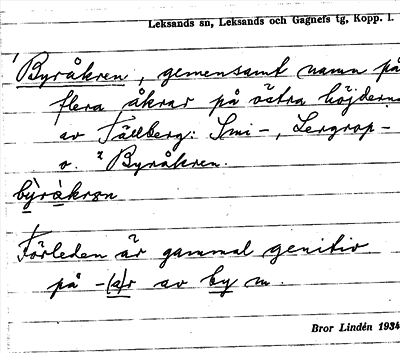 Leksands sn, Leksands och Gagnefs tg, Kopp. l.
1 Byråkren, gemensamt namn på
flera åkrar på östra höjderna
av Tällberg: Smi-, Lergrop-
o. 2 Byråkren.
Förleden är gammal genitiv
på -(a)r av by m.
Bror Lindén 1934